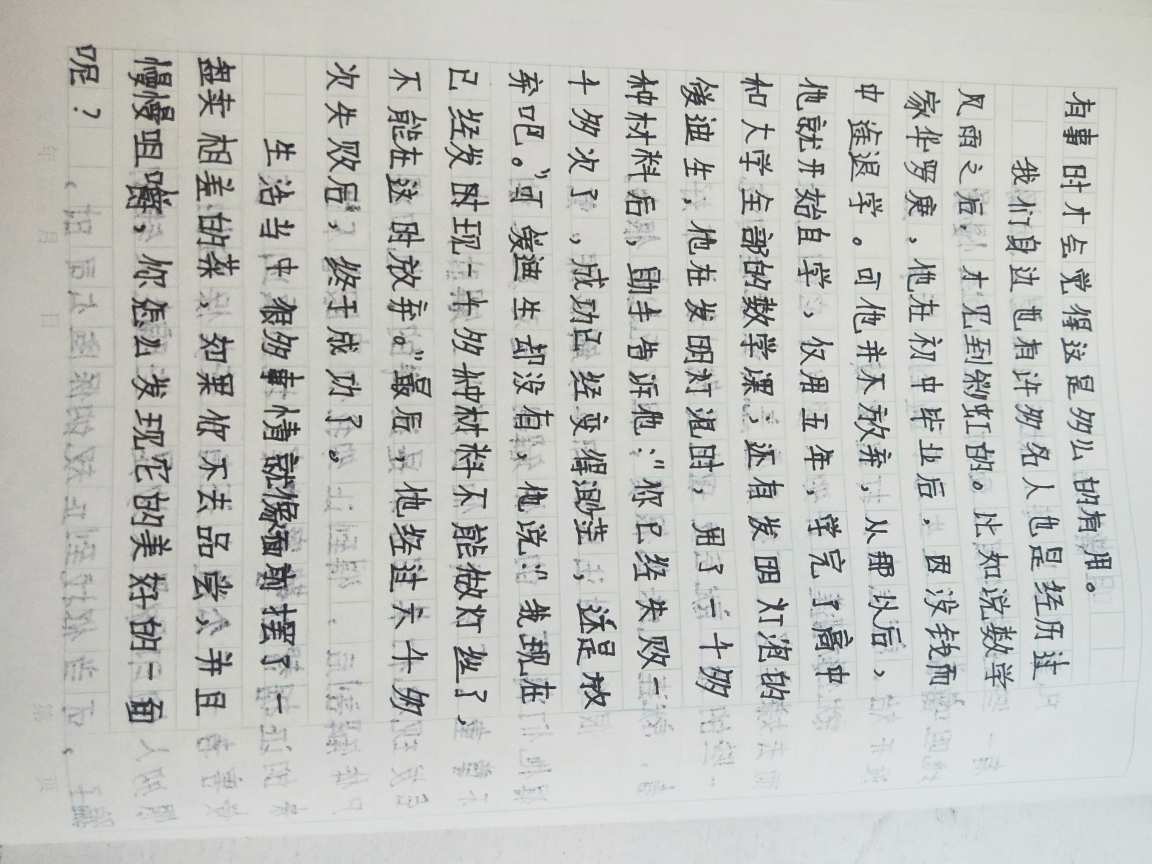 有事时才会觉得这是多么的有用。
我们身边也有许多名人也是经历过
风雨之后，才见到彩虹的。比如说数学
家华罗庚，他在初中毕业后，因没钱而
中途退学。可他并不放弃，从那以后，
他就开始自学，仅用五年，学完了高中
和大学全部的数学课，还有发明灯泡的
爱迪生，他在发明灯泡时，用了一千多
种材料后，助手告诉他："你已经失败一
千多次了，成功已经变得渺茫，还是放
弃吧。"可爱迪生却没有，他说："我现在
已经发时现一千多种材料不能做灯丝了，
不能在这时放弃。"最后，他经过六千多
次失败后，终于成功了。
生活当中很多事情就像面前摆了一
盘卖相差的菜，如果你不去品尝，并且
慢慢咀嚼，你怎么发现它的美好的一面
呢？